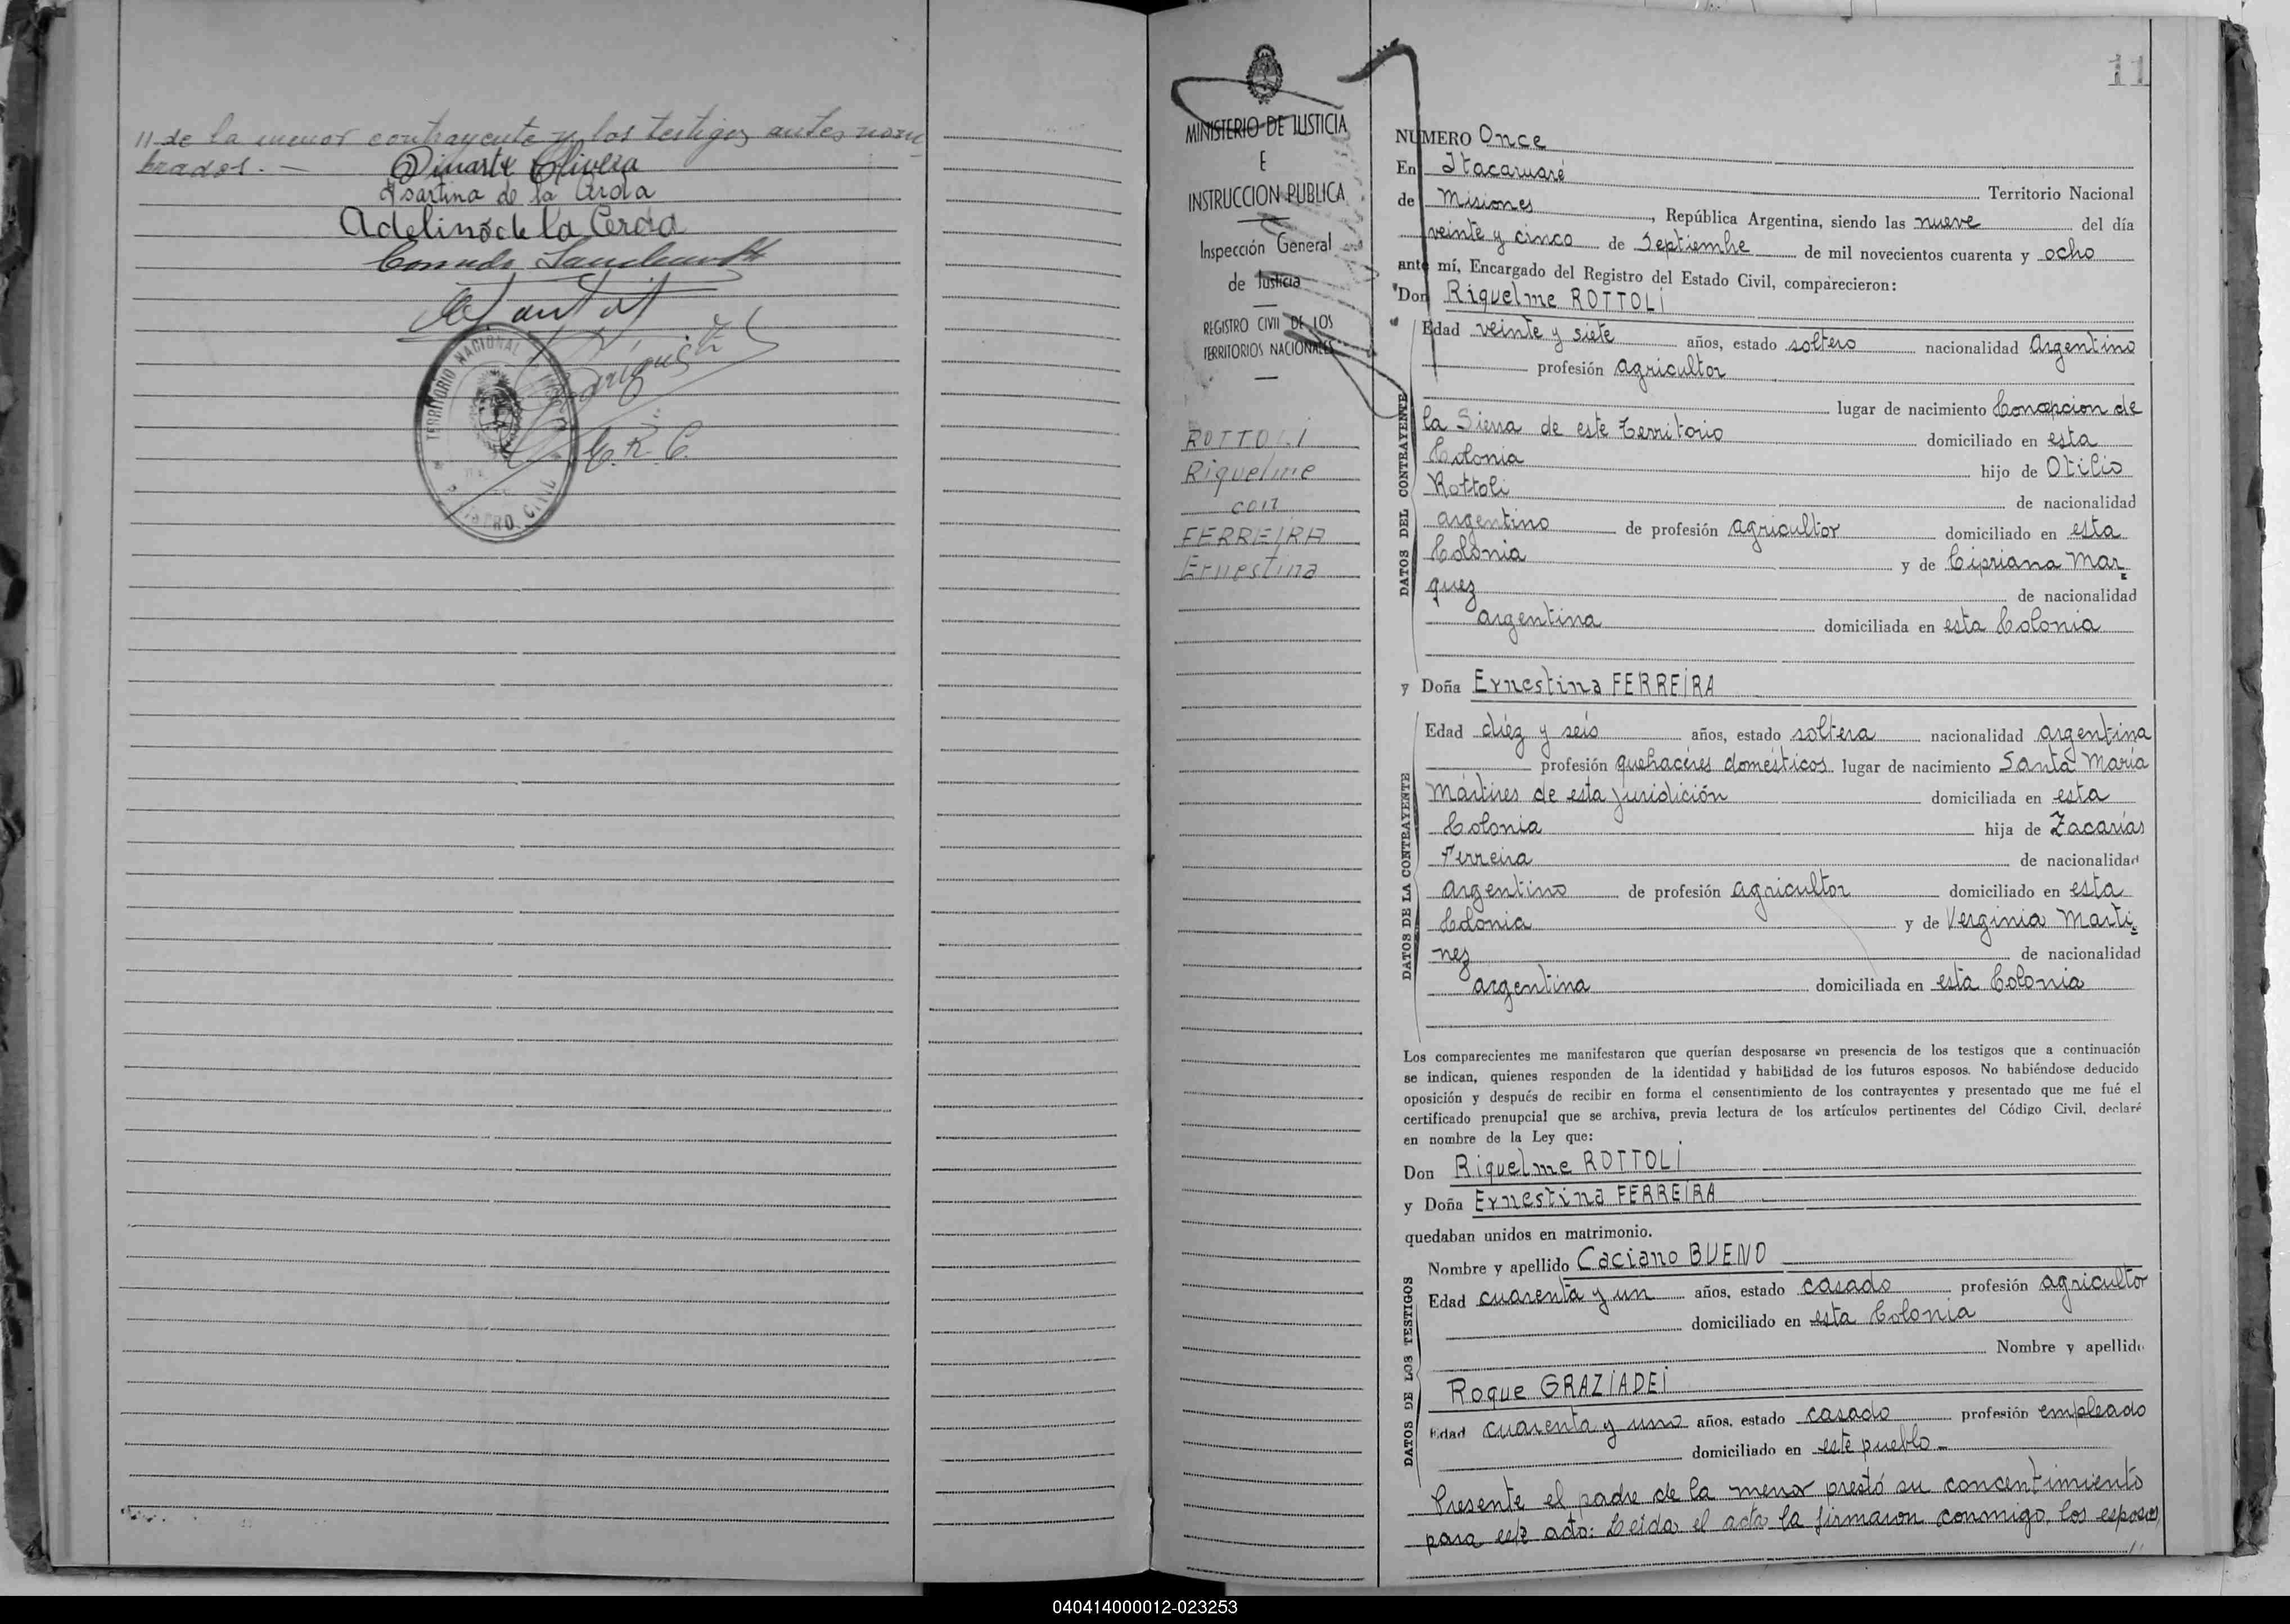 11 de la menor contrayente y los testigos antes nom-
brados. —
Dinarte Olivera
Isartina de la Cerda
Adelino de la Cerda
TERRITORIO NACIONAL
REGISTRO CIVIL
E. R. C.
MINISTERIO DE JUSTICIA
E
INSTRUCCION PUBLICA
Inspección General
de Justicia
REGISTRO CIVIL DE LOS
TERRITORIOS NACIONALES
ROTTOLI
Riquelme
con
FERREIRA
Ernestina
11
NUMERO Once
En Itacaruaré Territorio Nacional
de Misiones, República Argentina, siendo las nueve del día
veinte y cinco de Septiembre de mil novecientos cuarenta y ocho
ante mí, Encargado del Registro del Estado Civil, comparecieron:
Don Riquelme ROTTOLI
DATOS DEL CONTRAYENTE
Edad veinte y siete años, estado soltero nacionalidad argentino
profesión agricultor
lugar de nacimiento Concepcion de
la Sierra de este Territorio domiciliado en esta
Colonia hijo de Otilio
Rottoli de nacionalidad
argentino de profesión agricultor domiciliado en esta
Colonia y de Cipriana Mar-
quez de nacionalidad
argentina domiciliada en esta Colonia
y Doña Ernestina FERREIRA
DATOS DE LA CONTRAYENTE
Edad diéz y seis años, estado soltera nacionalidad argentina
profesión quehacéres domésticos lugar de nacimiento Santa María
Mártires de esta juridición domiciliada en esta
Colonia hija de Zacarías
Ferreira de nacionalidad
argentino de profesión agricultor domiciliado en esta
Colonia y de Verginia Marti-
nez de nacionalidad
argentina domiciliada en esta Colonia
Los comparecientes me manifestaron que querían desposarse en presencia de los testigos que a continuación
se indican, quienes responden de la identidad y habilidad de los futuros esposos. No habiéndose deducido
oposición y después de recibir en forma el consentimiento de los contrayentes y presentado que me fué el
certificado prenupcial que se archiva, previa lectura de los artículos pertinentes del Código Civil, declaré
en nombre de la Ley que:
Don Riquelme ROTTOLI
y Doña Ernestina FERREIRA
quedaban unidos en matrimonio.
DATOS DE LOS TESTIGOS
Nombre y apellido Caciano BUENO
Edad cuarenta y un años, estado casado profesión agricultor
domiciliado en esta Colonia
Nombre y apellido
Roque GRAZIADEI
Edad cuarenta y uno años, estado casado profesión empleado
domiciliado en este pueblo -
Presente el padre de la menor prestó su concentimiento
para este acto: Leída el acta la firmaron conmigo, los esposos,
11
040414000012-023253